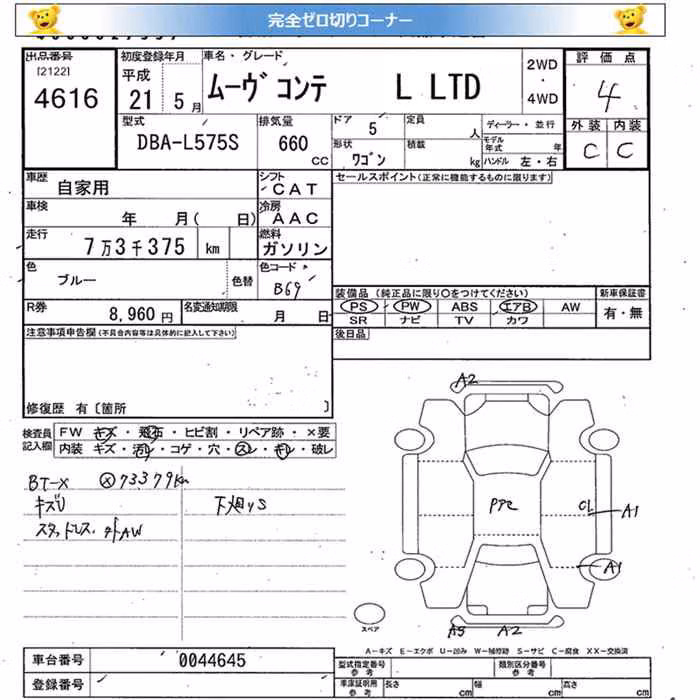 完全ゼロ切りコーナー
出品番号
[2122]
4616
初度登録年月
平成
21 5月
車名・グレード
ムーヴ コンテ L LTD
2WD
・
4WD
評価点
4
外装 内装
C C
型式
DBA-L575S
排気量
660
cc
ドア
5
定員
人
形状
ワゴン
積載
kg
ディーラー・並行
モデル年式 年
ハンドル 左・右
車歴
自家用
シフト
CAT
車検
年 月( 日)
冷房
AAC
走行
7万3千375 km
燃料
ガソリン
色
ブルー
色替
色コード
B69
R券
8,960円
名変通知期限
月 日
セールスポイント(正常に機能するものに限ります)
装備品 (純正品に限り○をつけてください)
PS PW ABS エアB AW
SR ナビ TV カワ
新車保証書
有・無
後日品
注意事項申告欄(不具合内容等は具体的に記入して下さい)
修復歴 有〔箇所 〕
検査員記入欄
FW キズ・飛石・ヒビ割・リペア跡・×要
内装 キズ・汚れ・コゲ・穴・スレ・キレ・破レ
BT-X ⓧ73379km
キズU
スタッドレス・
下廻りS
A2
PPC
CL
A1
A1
A2
スペア
A-キズ E-エクボ U-凹み W-補修跡 S-サビ C-腐食 XX-交換済
車台番号
0044645
登録番号
型式指定番号
参考
類別区分番号
参考
車庫証明用
参考
長さ cm
幅 cm
高さ cm